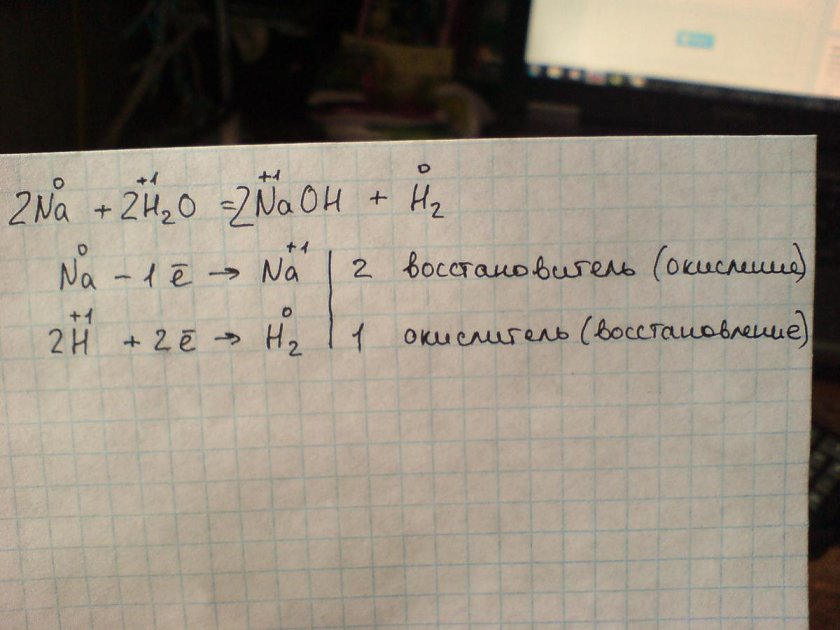 2Na⁰ + 2H₂⁺¹O = 2Na⁺¹OH + H₂⁰
Na⁰ - 1ē → Na⁺¹ | 2 восстановитель (окисление)
2H⁺¹ + 2ē → H₂⁰ | 1 окислитель (восстановление)